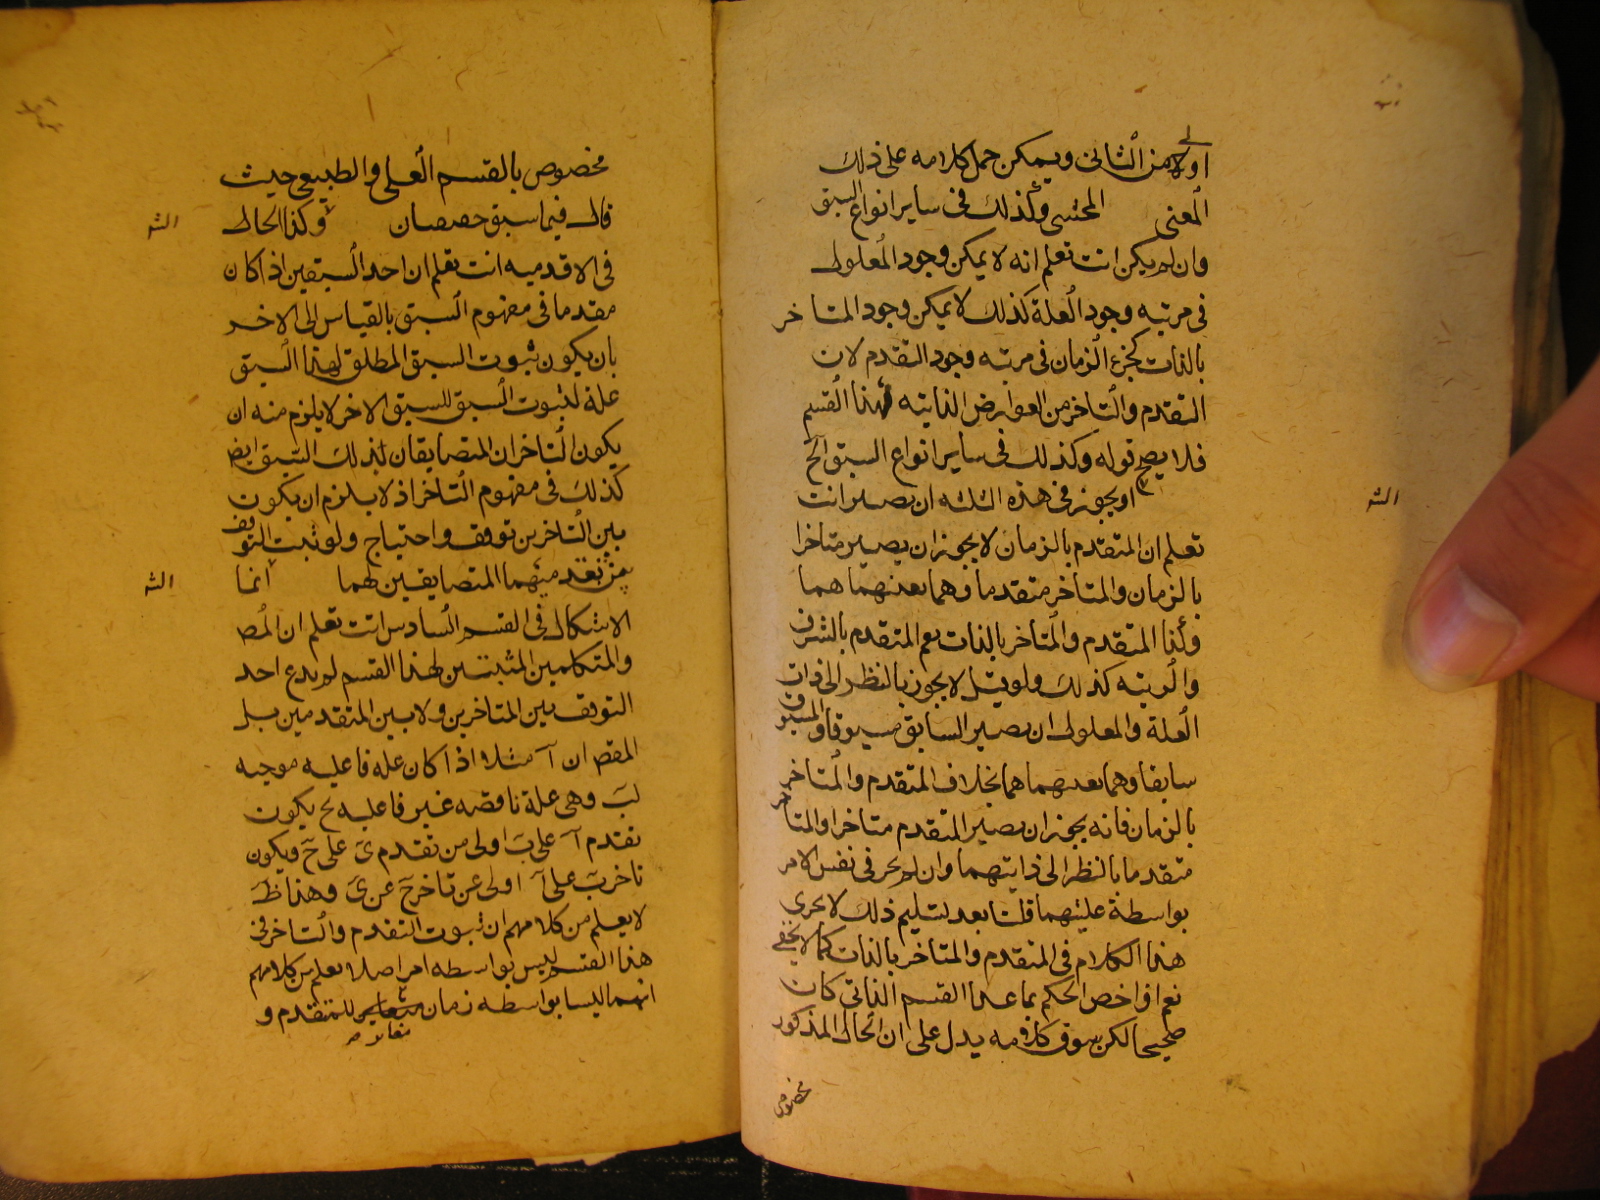 اولا من الثانى ويمكن حمل كلامه على ذلك
المعنى المحشى وكذلك فى ساير انواع السبق
وان لم يكن انت تعلم انه لا يمكن وجود المعلول
فى مرتبه وجود العلة كذلك لا يمكن وجود المتاخر
بالذات كجزء الزمان فى مرتبه وجود التقدم لان
التقدم والتاخر من العوارض الذاتيه لهذا القسم
فلا يصح قوله وكذلك فى ساير انواع السبق الخ
او يجوز فى هذه الثلثه ان يصير انت
تعلم ان المتقدم بالزمان لا يجوز ان يصير متاخرا
بالزمان والمتاخر متقدما وهما بعينهما هما
وكذا المتقدم والمتاخر بالذات نعم المتقدم بالشرف
والرتبه كذلك ولو قيل لا يجوز بالنظر الى ذات
العلة والمعلول ان يصير السابق مسبوقا والمسبوق
سابقا وهما بعينهما هما بخلاف المتقدم والمتاخر
بالزمان فانه يجوز ان يصير المتقدم متاخرا والمتاخر
متقدما بالنظر الى ذاتيهما وان لم يجز فى نفس الامر
بواسطة عليتهما قلنا بعد تسليم ذلك لا يجرى
هذا الكلام فى المتقدم والمتاخر بالذات كما لا يخفى
نعم لو اخص الحكم بما عدا القسم الذاتى كان
صحيحا لكن سوق كلامه يدل على ان الحال المذكور
مخصوص
الشه
مخصوص بالقسم العلى والطبيعى حيث
قال فيما سبق حصصان وكذا الحال
فى الاقدميه انت تعلم ان احد السبقين اذا كان
مقدما فى مفهوم السبق بالقياس الى الاخر
بان يكون ثبوت السبق المطلق لهذا السبق
علة لثبوت السبق للسبق الاخر لا يلزم منه ان
يكون التاخران المتضايفان لذلك السبق ايض
كذلك فى مفهوم التاخر اذ لا يلزم ان يكون
بين التاخرين توقف واحتياج ولو ثبت التوقف
بين تقدميهما المتضايفين لهما انما
الاشكال فى القسم السادس انت تعلم ان المص
والمتكلمين المثبتين لهذا القسم لم يدع احد
التوقف بين المتاخرين ولا بين المتقدمين بل
المقص ان آ مثلا اذا كان علة فاعليه موجبه
لب وهى علة ناقصه غير فاعليه لح يكون
تقدم آ على ب اولى من تقدم ى على ح ويكون
تاخر ب على آ اولى عن تاخر ح عن ى وهذا ظ
لا يعلم من كلامهم ان ثبوت التقدم والتاخر فى
هذا القسم ليس بواسطه امر اصلا يعلم من كلامهم
انهما ليسا بواسطه زمان للمتقدم و
مغاير
الشه
الشه